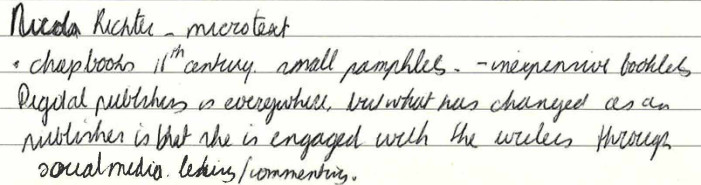 Nicola Richter - microtext
• chapbooks 11th century. small pamphlets. - inexpensive booklets
Digital publishers is everywhere, but what has changed as an
publisher is that she is engaged with the writers through
social media. /commenting.